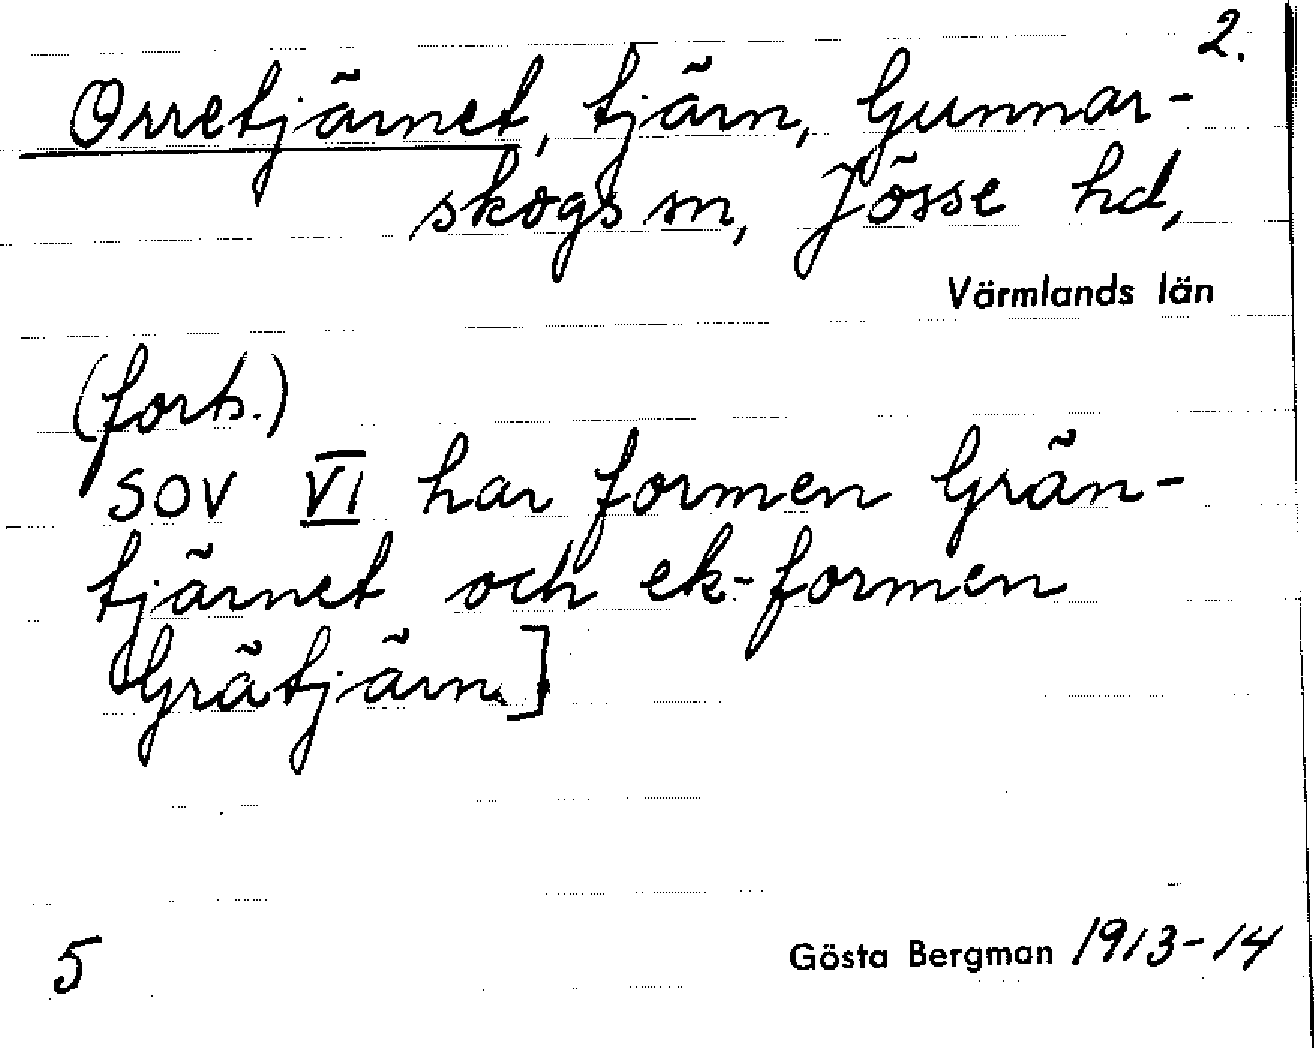 2.
Orretjärnet, tjärn, Gunnar-
skogs sn, Jösse hd,
Värmlands län
(forts.)
SOV VI har formen Grän-
tjärnet och ek-formen
Grätjärn]
5 Gösta Bergman 1913-14